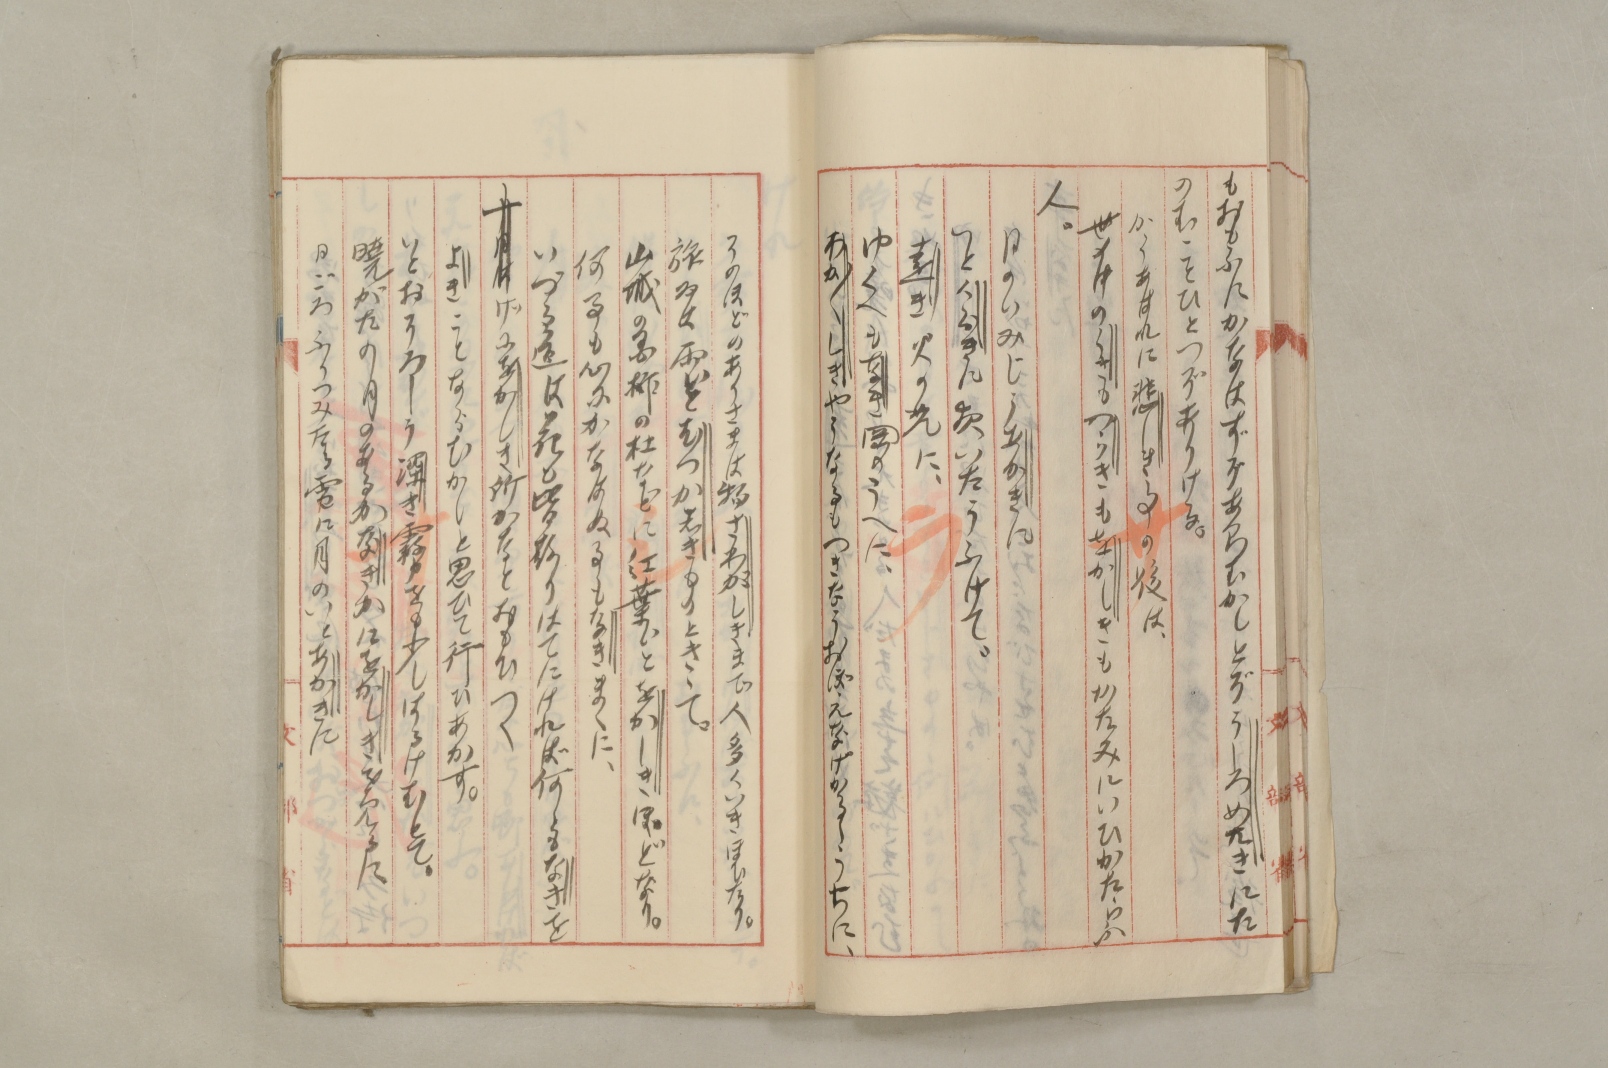 もおもふにかなはずぞあらむかしとぞうしろめたきにた
のむことひとつぞありける。
かうあはれに悲しき事の後は、
世の中のうきもつらきもをかしきもかたみにいひかたらふ
人。
日のいみじうあかきに
つとくらきに夜いたうふけて。
遠き火の光に、
ゆくへもなき空のうへに、
おか〳〵しきやうなるもつきなうおぼえなげかるゝうちに、
そのほどのありさまは物さわがしきまで人多くいきほひたり。
旅なる所
山城の
の杜などに紅葉いとをかしきほどなり。
何事も心にかなはぬ事もなきまゝに、
いづる道は花も皆散りはてにければ何ともなきを
げにをかしき所かなとおもひつゝ
よきことならむかしと思ひて行ひあかす。
いとおそろしう深き霧をも少しはるけむとて。
暁がたの月のあるかなきかにをかしきを見るに
日ごろふりつみたる雪に月のいとあかきに
文部省
サ
ラ